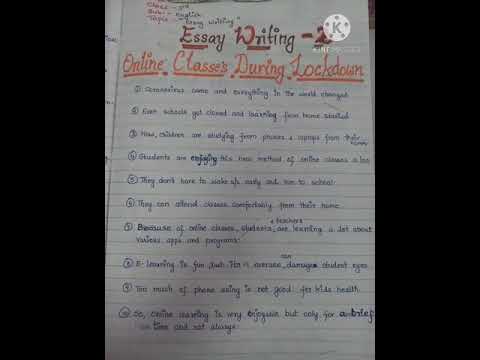 Class - 3rd
Sub:- English
Topic - "Essay Writing"
Essay Writing - 2
Online Classes During Lockdown
① Coronavirus came and everything in the world changed
② Even schools got closed and learning from home started
③ Now, children are studying from phones & laptops from their homes
④ Students are enjoying this new method of online classes a lot
⑤ They don't have to wake up early and run to school
⑥ They can attend classes comfortably from their home
⑦ Because of online classes, students & teachers are learning a lot about
various apps and programs
⑧ E-learning is fun, but its overuse can damage student eyes
⑨ Too much of phone using is not good for kids health
⑩ So, online learning is very enjoyable but only for a brief
time and not always